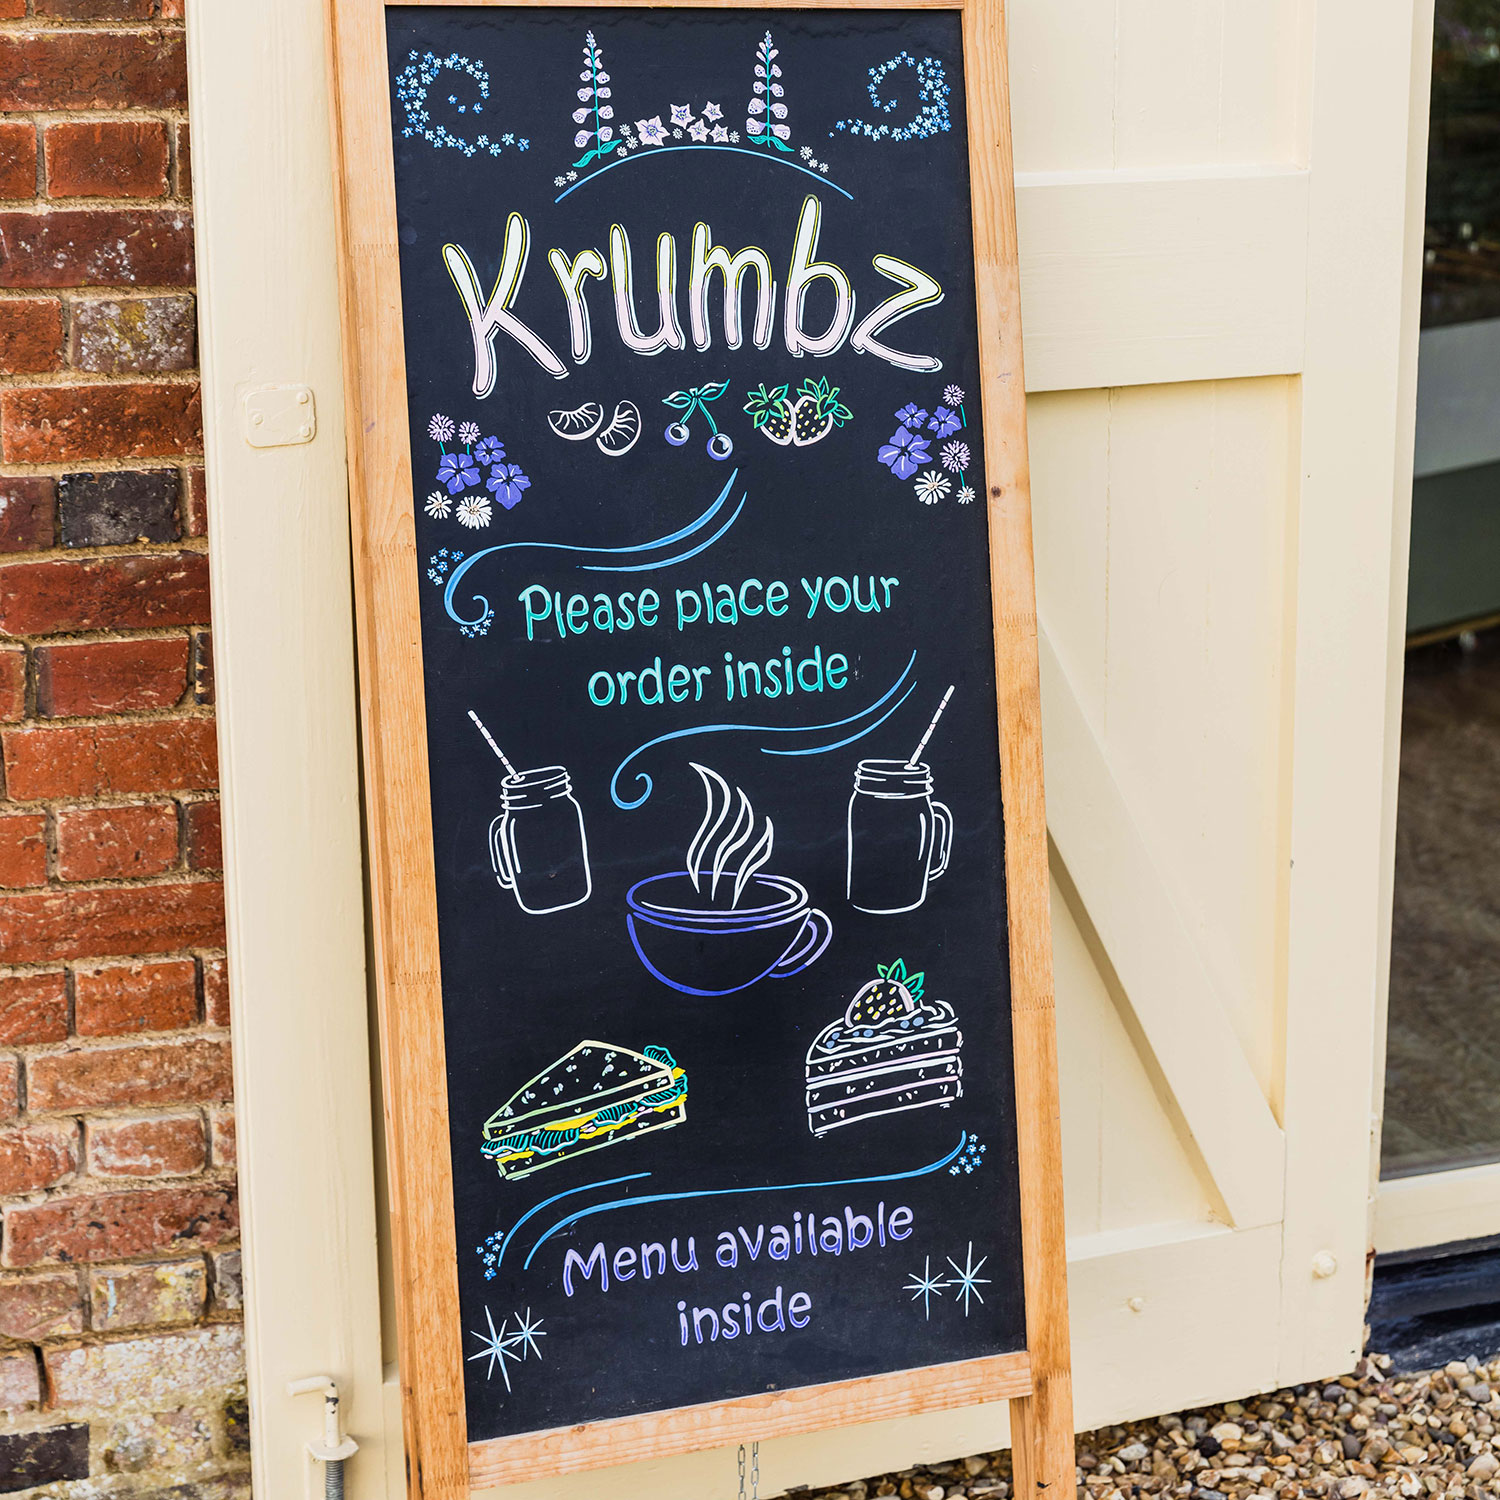 Krumbz
Please place your
order inside
Menu available
inside